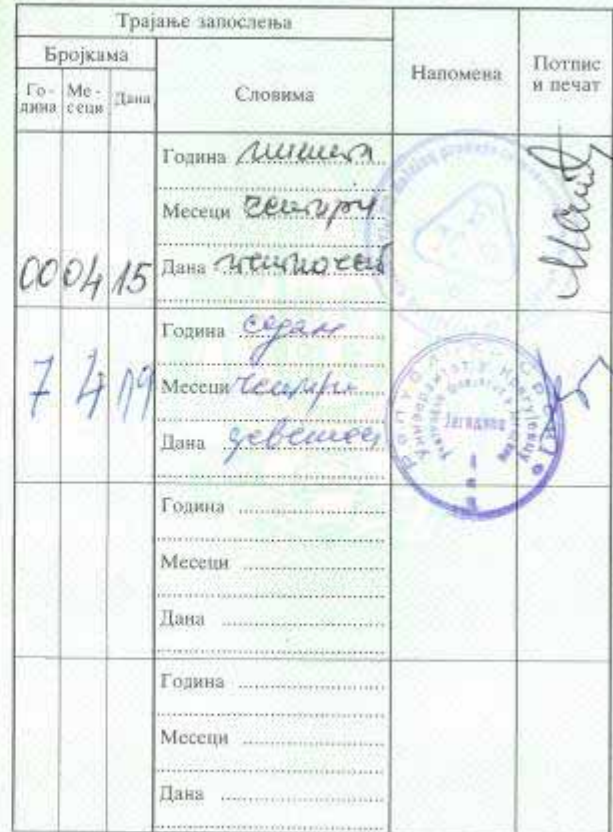 Трајање запослења
Бројкама
Го-дина
Ме-сеци
Дана
Словима
Напомена
Потпис и печат
00 04 15
Година ништа
Месеци четири
Дана петнаест
7 4 19
Година седам
Месеци четири
Дана деветнаест
Република Србија
Универзитет у Крагујевцу
Јагодина
Година
Месеци
Дана
Година
Месеци
Дана